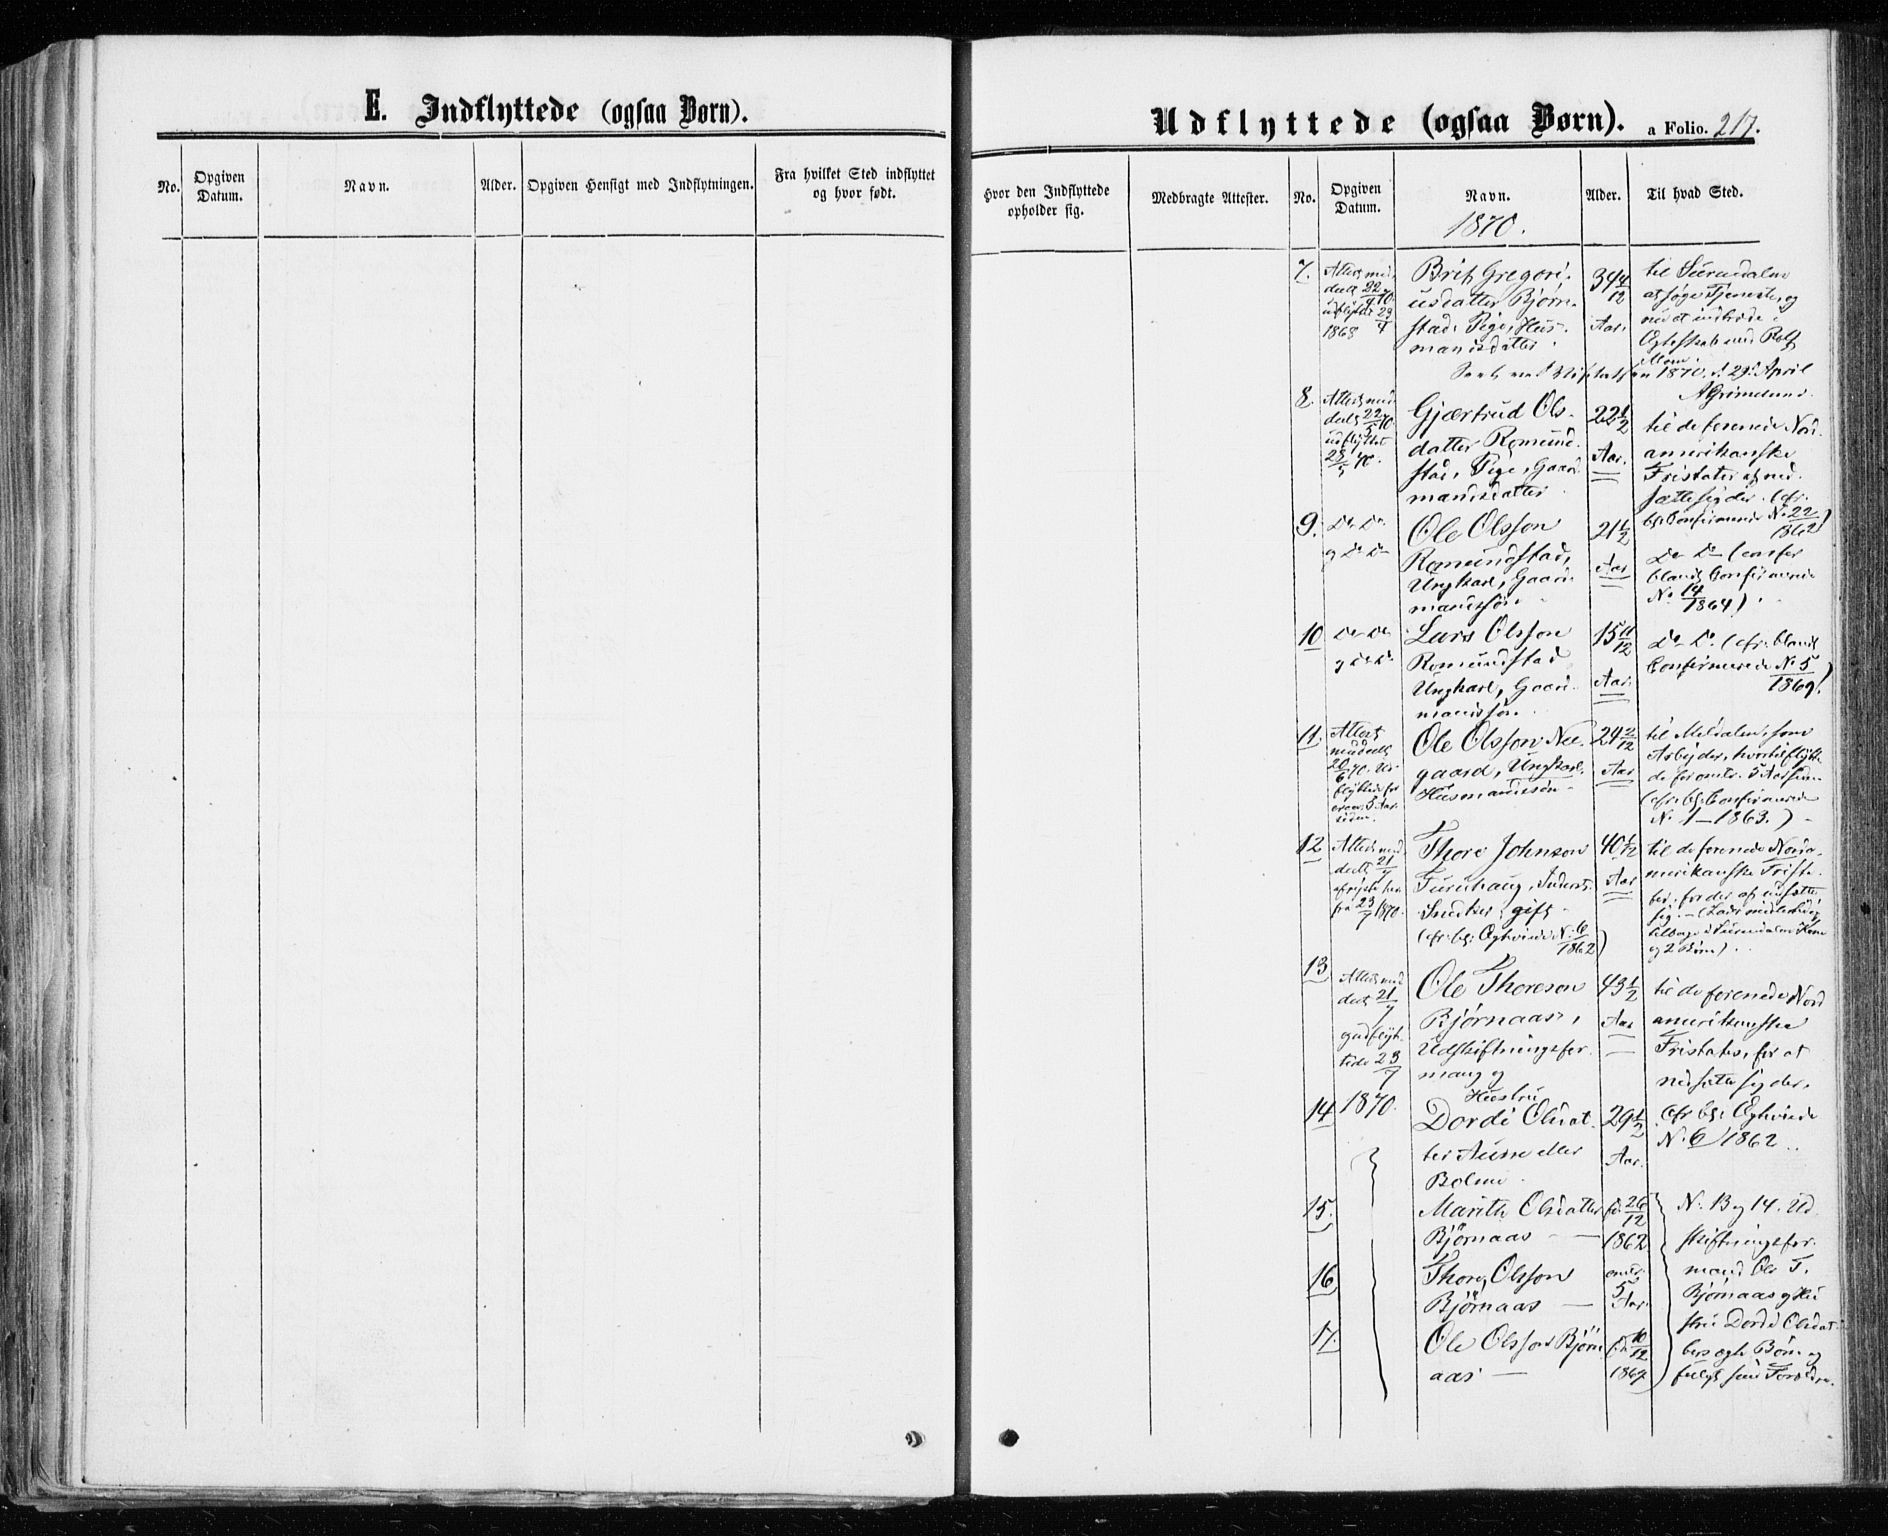 E. Indflyttede (ogsaa Børn).
No.
Opgiven Datum.
Navn.
Alder.
Opgiven Hensigt med Indflytningen.
Fra hvilket Sted indflyttet
og hvor født.
Udflyttede (ogsaa Børn). a Folio. 217.
Hvor den Indflyttede
opholder sig.
Medbragte Attester.
No.
Opgiven Datum.
Navn.
Alder.
Til hvad Sted.
1870.
7.
Attest med-
deelt 22/4 70
udflyttet 29/4
1868
Brit Gregori-
usdatter Bjørn-
stad, Pige, Hus-
mandsdatter.
34 4/12
Aar.
til Surendalen
at søge Tjeneste, og
nu at indtræde i
Egteskab med
1870. d. 29. April
AGrimelund.
8.
Attest med-
deelt 22/5 70
udflyttet
23/5 70.
Gjærtrud Ols-
datter Romund-
stad, Pige, Gaard-
mandsdatter
22 1/2
Aar.
til de forenede Nord-
amerikanske
Fristater at ned-
sætte sig der. (cfr.
bl. Confirmerede No 22/1862)
9.
Do Do
og Do Do
Ole Olsson
Romundstad,
Ungkarl, Gaard-
mandssøn.
21 1/2
Aar
Do Do (confer
blandt Confirmerede
No 14/1864).
10
Do Do
og Do Do
Lars Olsson
Romundstad
Ungkarl, Gaard-
mandssøn.
15 11/12
Aar.
Do Do (cfr. blandt
Confirmerede No 5/1869).
11.
Attest
meddeelt
20/6 70. Ud-
flyttede for
5 Aar
siden.
Ole Olsson Nee-
gaard, Ungkarl,
Husmandssøn
24 2/12
Aar
til Meldalen, som
Arbejder, hvortil flytte-
de for omtr. 5 Aar siden
(cfr. bl. Confirmerede
No 1 - 1863.)
12
Attest med-
deelt 21/7
afrejste her-
fra 23/7 1870.
Thore Johnson
Furuhaug,
Snedker, gift
(cfr. bl. Egteviede No 6/1862)
40 1/2
Aar
til de forenede Norda-
merikanske Frista-
ter, for der at nedsætte
sig.
tilbage i Surendalen Kone
og 2 Børn).
13
Attest med
deelt 21/7
og udflyt-
tede 23/7
1870.
Ole Thoreson
Bjørnaas,
Udskiftningsfor-
mand og
Hustru
43 1/2
Aar
til de forenede Nord
amerikanske
Fristater, for at
nedsætte sig der,
14
Dordi Olsdat-
ter Aune eller
Bolme.
29 1/2
Aar.
Cfr. bl. Egteviede
No. 6/1862.
15.
Marith Olsdatter
Bjørnaas
fd. 26/12
1862
16
Thore Olsson
Bjørnaas
omtr.
5
Aar.
17.
Ole Olsson Bjørn
aas
fd. 10/12
1867
No. 13 og 14. Ud-
skiftningsfor-
mand Ole T.
Bjørnaas og Hu-
stru Dordi Olsdat-
ters ægte Børn og
fulgt sine Forældre.